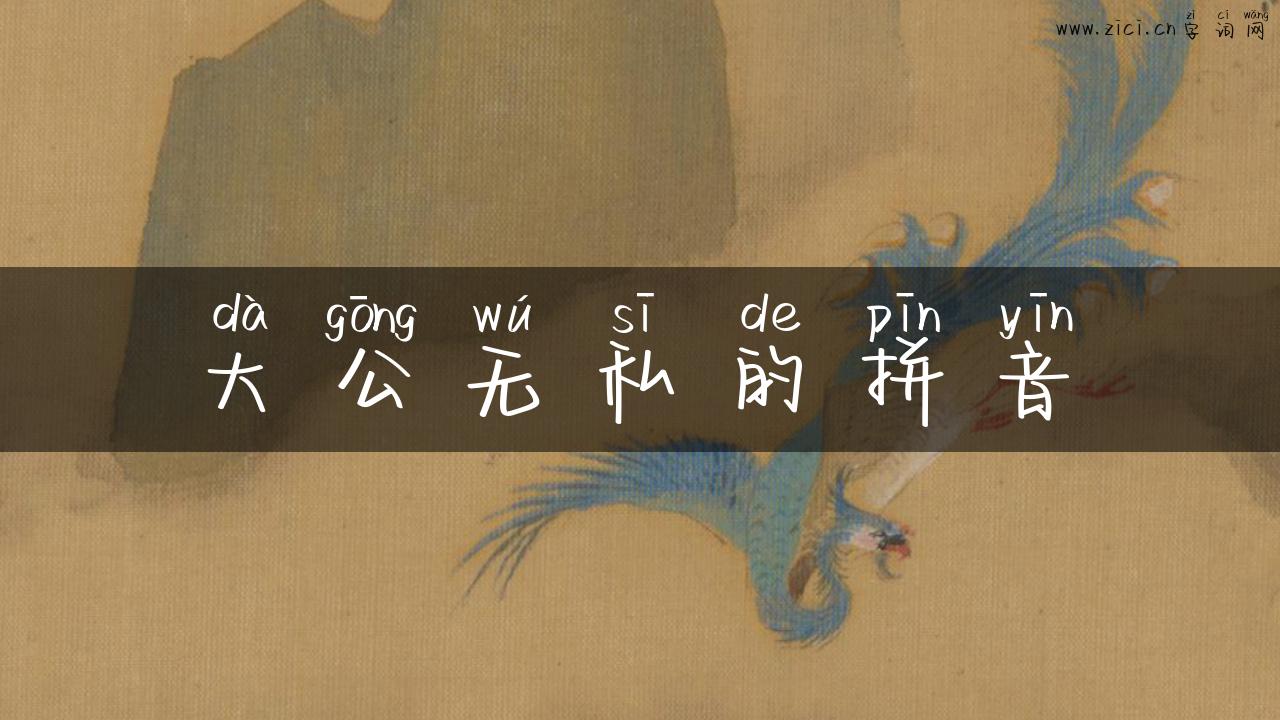 zì cí wǎng
www.zici.cn 字词网
dà gōng wú sī de pīn yīn
大公无私的拼音